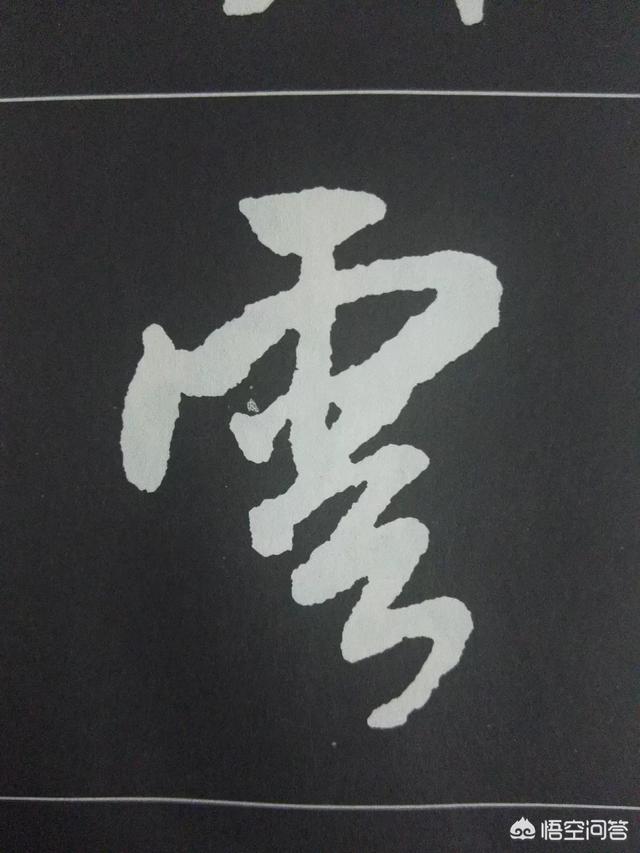 雲
悟空问答